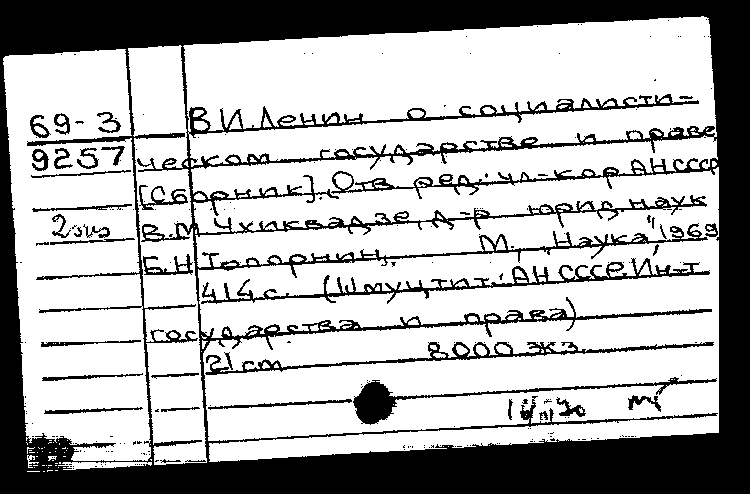 69-3 В.И.Ленин о социалисти-
9257 ческом государстве и праве.
[Сборник]. Отв. ред.: чл.-кор. АН СССР
2 экз В.М. Чхиквадзе, д-р юрид. наук
Б.Н. Топорнин. М., „Наука", 1969.
414 с. (Шмуцтит.: АН СССР. Ин-т
государства и права)
21 cm 8000 экз.